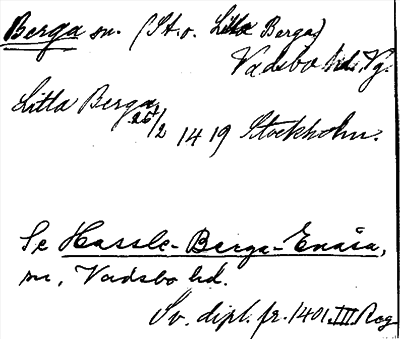 Berga sn. (St. o. Litla Berga)
Vadsbo hd. Vg.
Litla Berga 25/2 1419 Stockholm.
Se Hassle-Berga-Enåsa,
sn, Vadsbo hd.
Sv. dipl. fr. 1401. III Reg